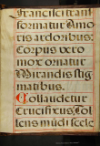 Franciscū tran
sformatur Amo
ris ardoribus:
Corpus vero
mox ornatur
Mirandis stig
matibus.
Collaudetur
Crucifixus, Tol
lens mūdi scele